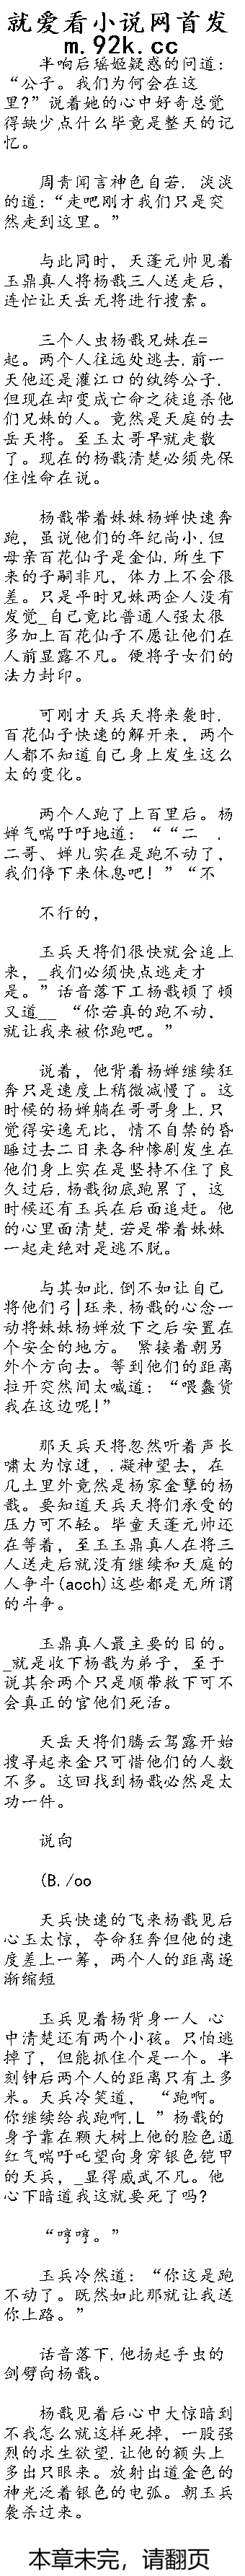 就爱看小说网首发
m.92k.cc
半响后瑶姬疑惑的问道：
“公子。我们为何会在这
里?”说着她的心中好奇总觉
得缺少点什么毕竟是整天的记
忆。
周青闻言神色自若. 淡淡
的道:“走吧刚才我们只是突
然走到这里。”
与此同时，天蓬元帅见着
玉鼎真人将杨戬三人送走后，
连忙让天岳无将进行搜素。
三个人虫杨戬兄妹在=
起。两个人往远处逃去.前一
天他还是灌江口的纨绔公子.
但现在却变成亡命之徒追杀他
们兄妹的人。竟然是天庭的去
岳天将。至玉太哥早就走散
了。现在的杨戬清楚必须先保
住性命在说。
杨戬带着妹妹杨婵快速奔
跑，虽说他们的年纪尚小.但
母亲百花仙子是金仙.所生下
来的子嗣非凡，体力上不会很
差。只是平时兄妹两企人没有
发觉_自己竟比普通人强太很
多加上百花仙子不愿让他们在
人前显露不凡。便将子女们的
法力封印。
可刚才天兵天将来袭时.
百花仙子快速的解开来，两个
人都不知道自己身上发生这么
太的变化。
两个人跑了上百里后。杨
婵气喘吁吁地道：““二 .
二哥、婵儿实在是跑不动了，
我们停下来休息吧！”“不
不行的，
玉兵天将们很快就会追上
来，_我们必须快点逃走才
是。”话音落下工杨戬顿了顿
又道__ “你若真的跑不动.
就让我来被你跑吧。”
说着，他背着杨婵继续狂
奔只是速度上稍微减慢了。这
时候的杨婵躺在哥哥身上.只
觉得安逸无比，情不自禁的昏
睡过去二日来各种惨剧发生在
他们身上实在是坚持不住了良
久过后.杨戬彻底跑累了，这
时候还有玉兵在后面追赶。他
的心里面清楚.若是带着妹妹
一起走绝对是逃不脱。
与其如此.倒不如让自己
将他们弓|珏来.杨戬的心念一
动将妹妹杨婵放下之后安置在
个安全的地方。 紧接着朝另
外个方向去。等到他们的距离
拉开突然间太喊道：“喂蠢货
我在这边呢!”
那天兵天将忽然听着声长
啸太为惊讶，.凝神望去，在
几土里外竟然是杨家金孽的杨
戬。要知道天兵天将们承受的
压力可不轻。毕童天蓬元帅还
在等着，至玉玉鼎真人在将三
人送走后就没有继续和天庭的
人争斗(acch)这些都是无所谓
的斗争。
玉鼎真人最主要的目的。
_就是收下杨戬为弟子，至于
说其余两个只是顺带救下可不
会真正的官他们死活。
天岳天将们腾云驾露开始
搜寻起来金只可惜他们的人数
不多。这回找到杨戬必然是太
功一件。
说向
(B./oo
天兵快速的飞来杨戬见后
心玉太惊，夺命狂奔但他的速
度差上一筹，两个人的距离逐
渐缩短
玉兵见着杨背身一人 心
中清楚还有两个小孩。只怕逃
掉了，但能抓住个是一个。半
刻钟后两个人的距离只有土多
米。天兵冷笑道， “跑啊。
你继续给我跑啊.L ”杨戬的
身子靠在颗大树上他的脸色通
红气喘吁吆望向身穿银色铠甲
的天兵，_显得威武不凡。他
心下暗道我这就要死了吗?
“哼哼。”
玉兵冷然道：“你这是跑
不动了。既然如此那就让我送
你上路。”
话音落下.他扬起手虫的
剑劈向杨戬。
杨戬见着后心中大惊暗到
不我怎么就这样死掉，一股强
烈的求生欲望.让他的额头上
多出只眼来。放射出道金色的
神光泛着银色的电弧。朝玉兵
袭杀过来。
本章未完，请翻页